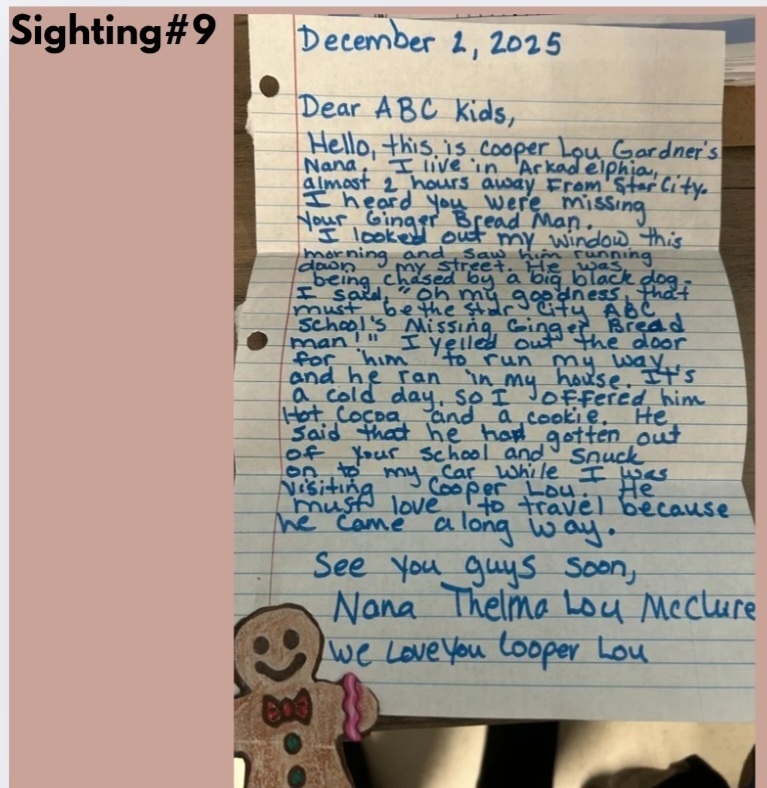 Sighting#9
December 2, 2025
Dear ABC Kids,
Hello, this is Cooper Lou Gardner's
Nana. I live in Arkadelphia,
almost 2 hours away From Star City.
I heard you were missing
your Ginger Bread Man.
I looked out my window this
morning and saw him running
down my street. He was
being chased by a big black dog.
I said, "Oh my goodness, that
must be the Star City ABC
School's Missing Ginger Bread
man!" I yelled out the door
for him to run my way
and he ran in my house. It's
a cold day, so I offered him
Hot Cocoa and a cookie. He
said that he had gotten out
of your school and snuck
on to my car while I was
visiting Cooper Lou. He
must love to travel because
he came a long way.
See you guys soon,
Nana Thelma Lou McClure
We Love You Cooper Lou